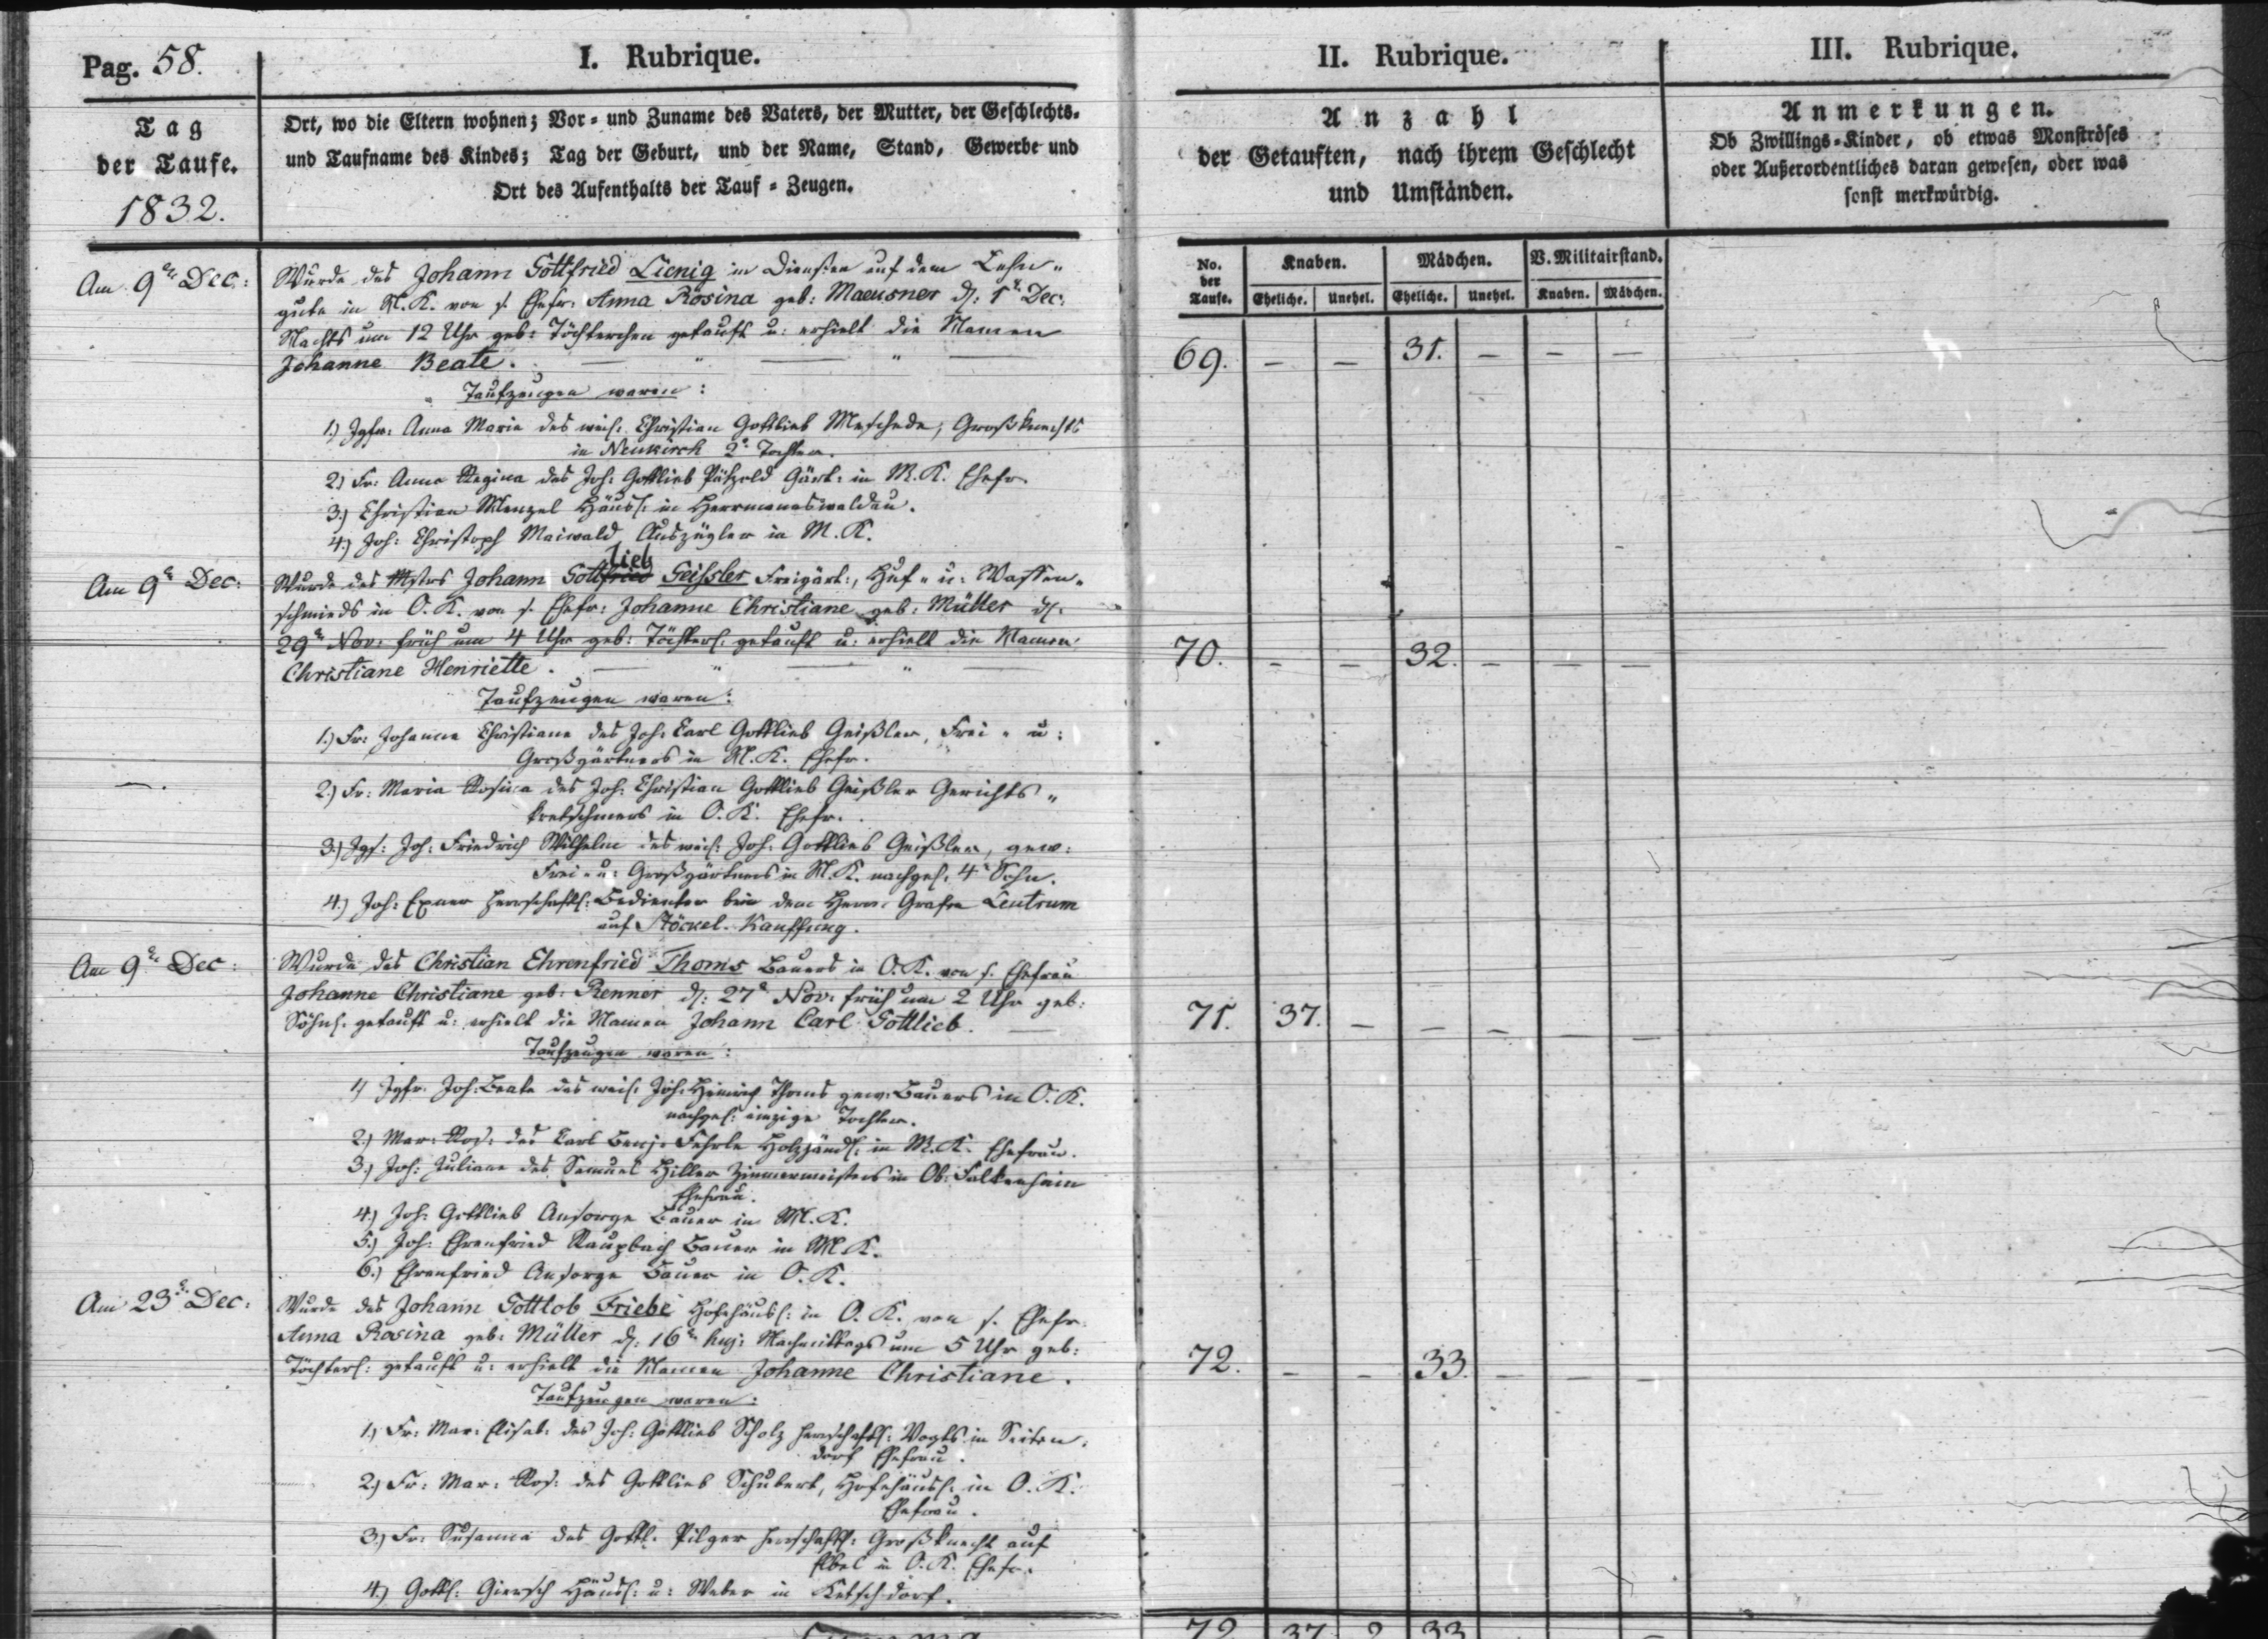 Pag. 58.
I. Rubrique.
II. Rubrique.
III. Rubrique.
Tag
der Taufe.
1832.
Ort, wo die Eltern wohnen; Vor- und Zuname des Vaters, der Mutter, der Geschlechts-
und Taufname des Kindes; Tag der Geburt, und der Name, Stand, Gewerbe und
Ort des Aufenthalts der Tauf-Zeugen.
Anzahl
der Getauften, nach ihrem Geschlecht
und Umständen.
Anmerkungen.
Ob Zwillings-Kinder, ob etwas Monströses
oder Außerordentliches daran gewesen, oder was
sonst merkwürdig.
No. der Taufe.
Knaben.
Mädchen.
V. Militairstand.
Eheliche. Unehel. Eheliche. Unehel. Knaben. Mädchen.
Am 9n Dec:
Wurde des Johann Gottfried Lienig in Diensten auf dem Lehn„
gute in M. K. von s. Ehefr: Anna Rosina geb: Maeusner d: 1n Dec:
Nachts um 12 Uhr geb: Töchterchen getauft u: erhielt die Namen
Johanne Beate. — „ — „ —
69. — — 31. — — —
Taufzeugen waren:
1.) Jgfr: Anna Maria des weil: Christian Gottlieb Meschede, Großknechts
in Neukirch 2e Tochter.
2.) Fr: Anna Regina des Joh: Gottlieb Pätzold Gärt: in M. K. Ehefr.
3.) Christian Menzel Häusl: in Herrmannswaldau.
4.) Joh: Christoph Maiwald Auszügler in M. K.
Am 9n Dec:
lieb
Wurde des Mstrs Johann Gottfried Geißler Freigärt:, Huf„ u: Waffen„
schmieds in O. K. von s. Ehefr: Johanne Christiane geb: Müller d:
29n Nov: früh um 4 Uhr geb: Töchterl: getauft u: erhielt die Namen
Christiane Henriette. — „ — „ —
70. — — 32. — — —
Taufzeugen waren:
1.) Fr: Johanne Christiane des Joh: Carl Gottlieb Geißler, Frei„ u:
Großgärtners in M. K. Ehefr.
2.) Fr: Maria Rosina des Joh: Christian Gottlieb Geißler Gerichts„
kretschmers in O. K. Ehefr.
3.) Jgs: Joh: Friedrich Wilhelm des weil: Joh: Gottlieb Geißler, gew:
Frei„ u: Großgärtners in M. K. nachgel: 4r Sohn.
4.) Joh: Exner herrschaftl: Bedienter bei dem Herrn Grafen Leutrum
auf Stöckel-Kauffung.
Am 9n Dec:
Wurde des Christian Ehrenfried Thoms Bauers in O. K. von s. Ehefrau
Johanne Christiane geb: Renner d: 27n Nov: früh um 2 Uhr geb:
Söhnl: getauft u: erhielt die Namen Johann Carl Gottlieb. —
71. 37. — — — — —
Taufzeugen waren:
1.) Jgfr. Joh: Beate des weil: Joh: Heinrich Thoms gew: Bauers in O. K.
nachgel: einzige Tochter.
2.) Mar: Ros: des Carl Benj: in M. K. Ehefrau.
3.) Joh: Juliane des Samuel Hiller Zimmermeisters in Ob: Falkenhain
Ehefrau.
4.) Joh: Gottlieb Ansorge Bauer in M. K.
5.) Joh: Ehrenfried Raupbach Bauer in M. K.
6.) Ehrenfried Ansorge Bauer in O. K.
Am 23n Dec:
Wurde des Johann Gottlob Friebe Hofehäusl: in O. K. von s. Ehefr:
Anna Rosina geb: Müller d: 16n huj: Nachmittags um 5 Uhr geb:
Töchterl: getauft u: erhielt die Namen Johanne Christiane.
72. — — 33. — — —
Taufzeugen waren:
1.) Fr: Mar: Elisab: des Joh: Gottlieb Scholz herrschaftl: Vogts in Seiten„
dorf Ehefrau.
2.) Fr: Mar: Ros: des Gottlieb Schubert, Hofehäusl: in O. K.
Ehefrau.
3.) Fr: Susanna des Gottl: Pilger herrschaftl: Großknecht auf
in O. K. Ehefr.
4.) Gottl: Giersch Häusl: u: Weber in Ketschdorf.
72 37 2 33